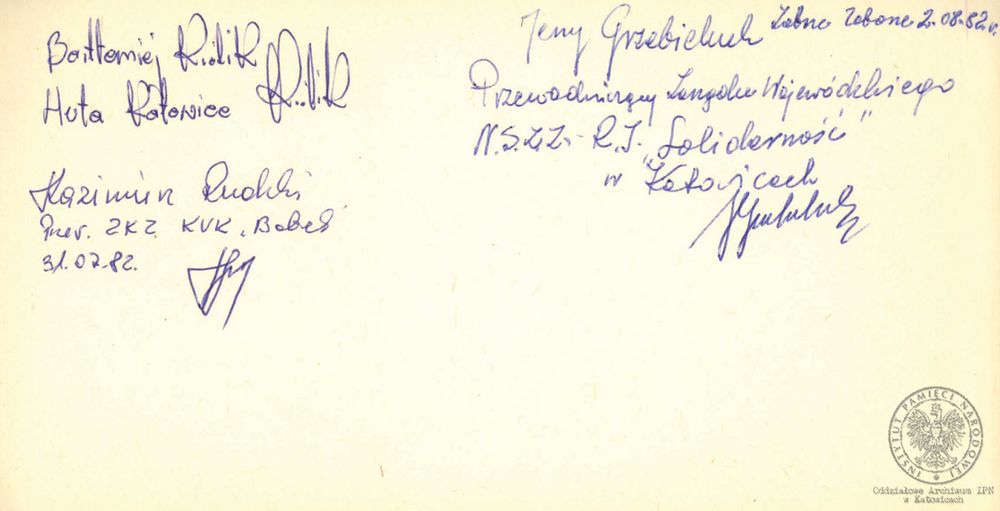 Bartłomiej Królik
Huta Katowice
Kazimierz Rudzki
Przew. ZKZ KWK "Bobrek"
31.07.82.
Jerzy Grzebieluch Zabrze Zaborze 2.08.82 r.
Przewodniczący Zarządu Wojewódzkiego
N.S.Z.Z. R.I. "Solidarność"
w Katowicach
INSTYTUT PAMIĘCI NARODOWEJ
Oddziałowe Archiwum IPN
w Katowicach